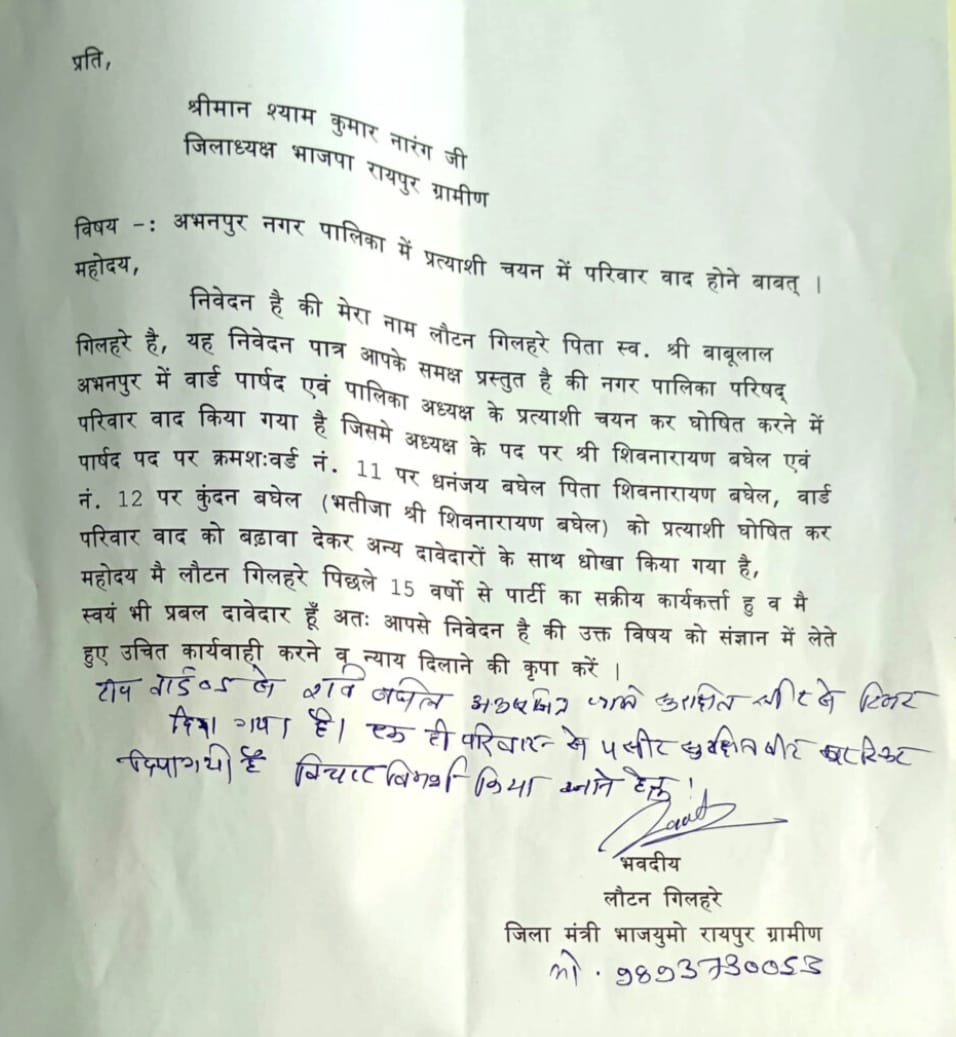 प्रति,
श्रीमान श्याम कुमार नारंग जी
जिलाध्यक्ष भाजपा रायपुर ग्रामीण
विषय -: अभनपुर नगर पालिका में प्रत्याशी चयन में परिवार वाद होने बाबत् ।
महोदय,
निवेदन है की मेरा नाम लौटन गिलहरे पिता स्व. श्री बाबूलाल
गिलहरे है, यह निवेदन पात्र आपके समक्ष प्रस्तुत है की नगर पालिका परिषद्
अभनपुर में वार्ड पार्षद एवं पालिका अध्यक्ष के प्रत्याशी चयन कर घोषित करने में
परिवार वाद किया गया है जिसमे अध्यक्ष के पद पर श्री शिवनारायण बघेल एवं
पार्षद पद पर क्रमशःवर्ड नं. 11 पर धनंजय बघेल पिता शिवनारायण बघेल, वार्ड
नं. 12 पर कुंदन बघेल (भतीजा श्री शिवनारायण बघेल) को प्रत्याशी घोषित कर
परिवार वाद को बढ़ावा देकर अन्य दावेदारों के साथ धोखा किया गया है,
महोदय मै लौटन गिलहरे पिछले 15 वर्षो से पार्टी का सक्रीय कार्यकर्त्ता हु व मै
स्वयं भी प्रबल दावेदार हूँ अतः आपसे निवेदन है की उक्त विषय को संज्ञान में लेते
हुए उचित कार्यवाही करने व न्याय दिलाने की कृपा करें ।
रवि सीट
दिया गया है। एक ही परिवार सीट
है विचार विमर्श किया जाने हेतु!
भवदीय
लौटन गिलहरे
जिला मंत्री भाजयुमो रायपुर ग्रामीण
मो. 9893730053